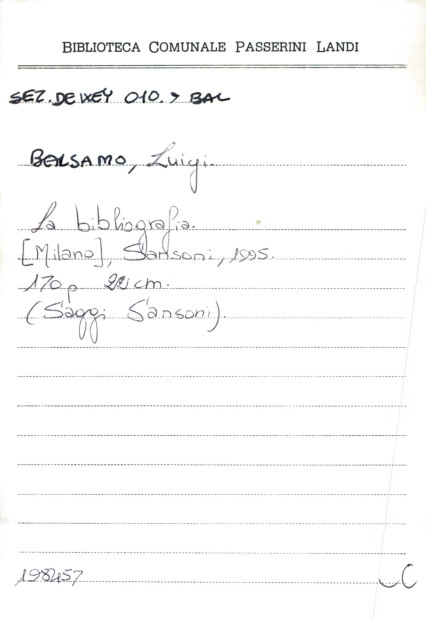 BIBLIOTECA COMUNALE PASSERINI LANDI
SEZ. DEWEY 010. > BAL
BALSAMO, Luigi.
La bibliografia.
[Milano], Sansoni, 1995.
170 p 22 cm.
(Saggi Sansoni).
198457